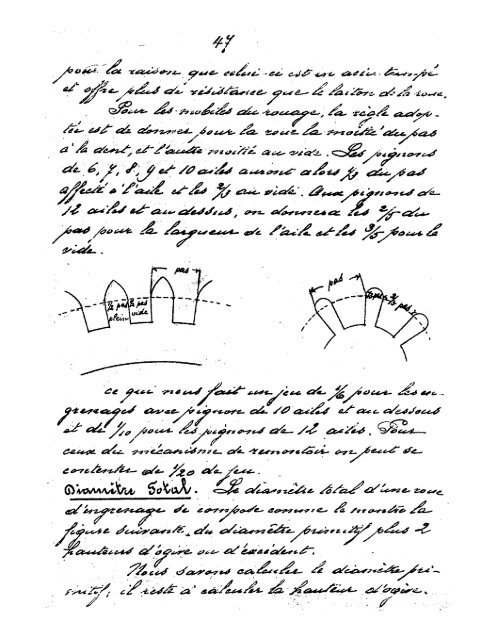 47
pour la raison que celui-ci est en acier trempé
et offre plus de résistance que le laiton de la roue.
Pour les mobiles du rouage, la règle adop-
tée est de donner pour la roue la moitié du pas
à la dent, et l'autre moitié au vide. Les pignons
de 6, 7, 8, 9 et 10 ailes auront alors 1/3 du pas
affecté à l'aile et les 2/3 au vide. Aux pignons de
12 ailes et au dessus, on donnera les 2/5 du
pas pour la largueur de l'aile et les 3/5 pour le
vide.
pas
pas
1/2 pas 1/2 pas
plein vide
2/3 pas
ce qui nous fait un jeu de 1/6 pour les en-
grenages avec pignon de 10 ailes et au dessous
et de 1/10 pour les pignons de 12 ailes. Pour
ceux du mécanisme de remontoir on peut se
contenter de 1/20 de jeu.
Diamètre Total. Le diamètre total d'une roue
d'engrenage se compose comme le montre la
figure suivante, du diamètre primitif plus 2
hauteurs d'ogive ou d'excédent.
Nous savons calculer le diamètre pri-
mitif; il reste à calculer la hauteur d'ogive.